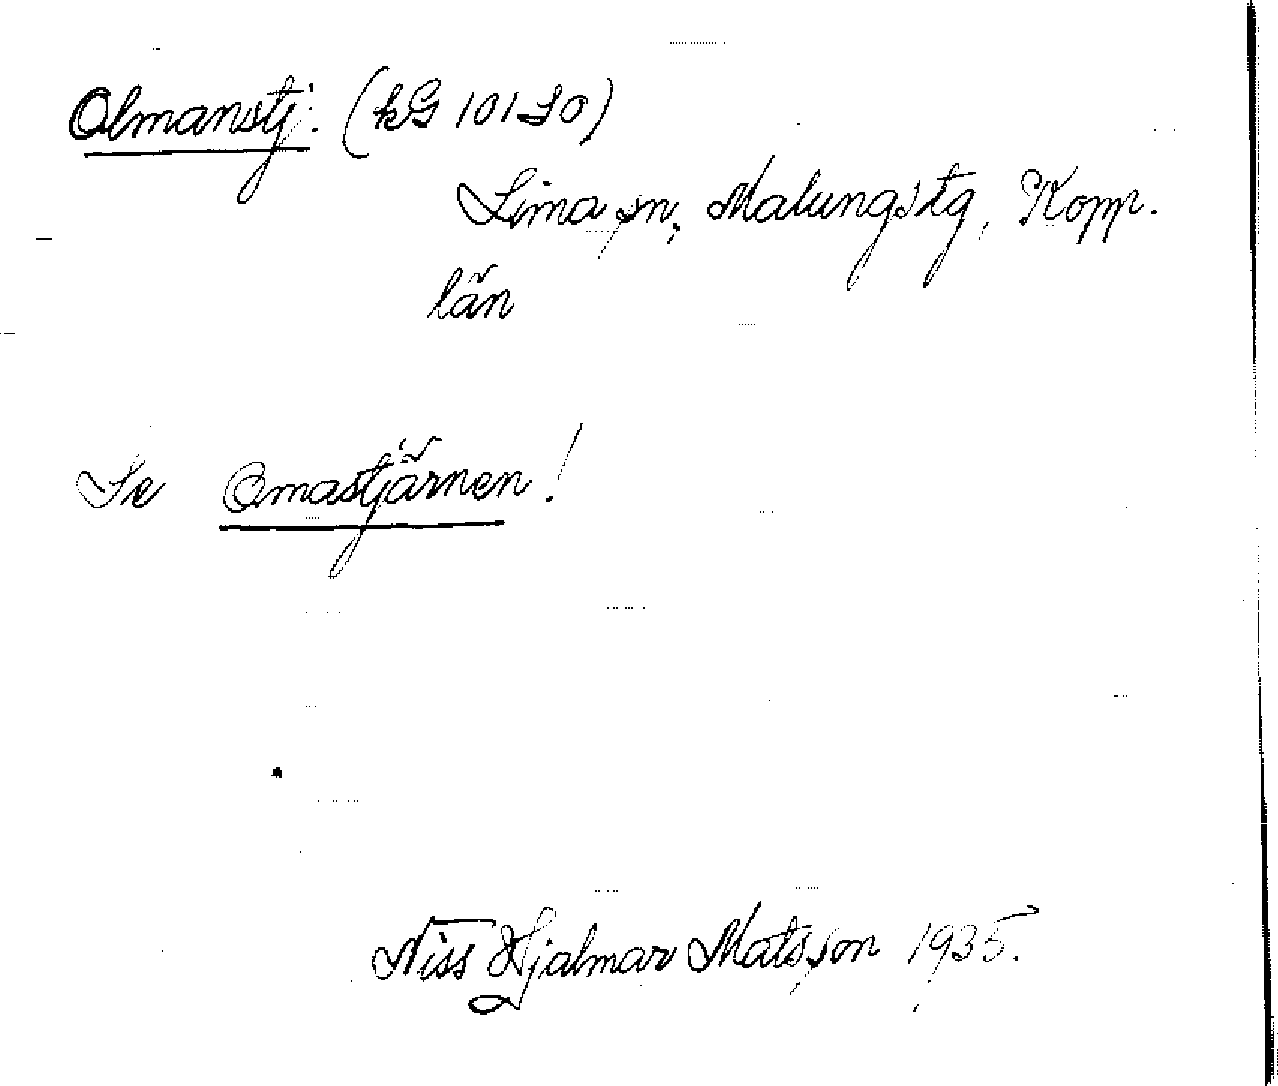 Olmanstj. (kG 101 SO)
Lima sn, Malungs tg, Kopp.
län
Se Omastjärnen!
Niss Hjalmar Matsson 1935.